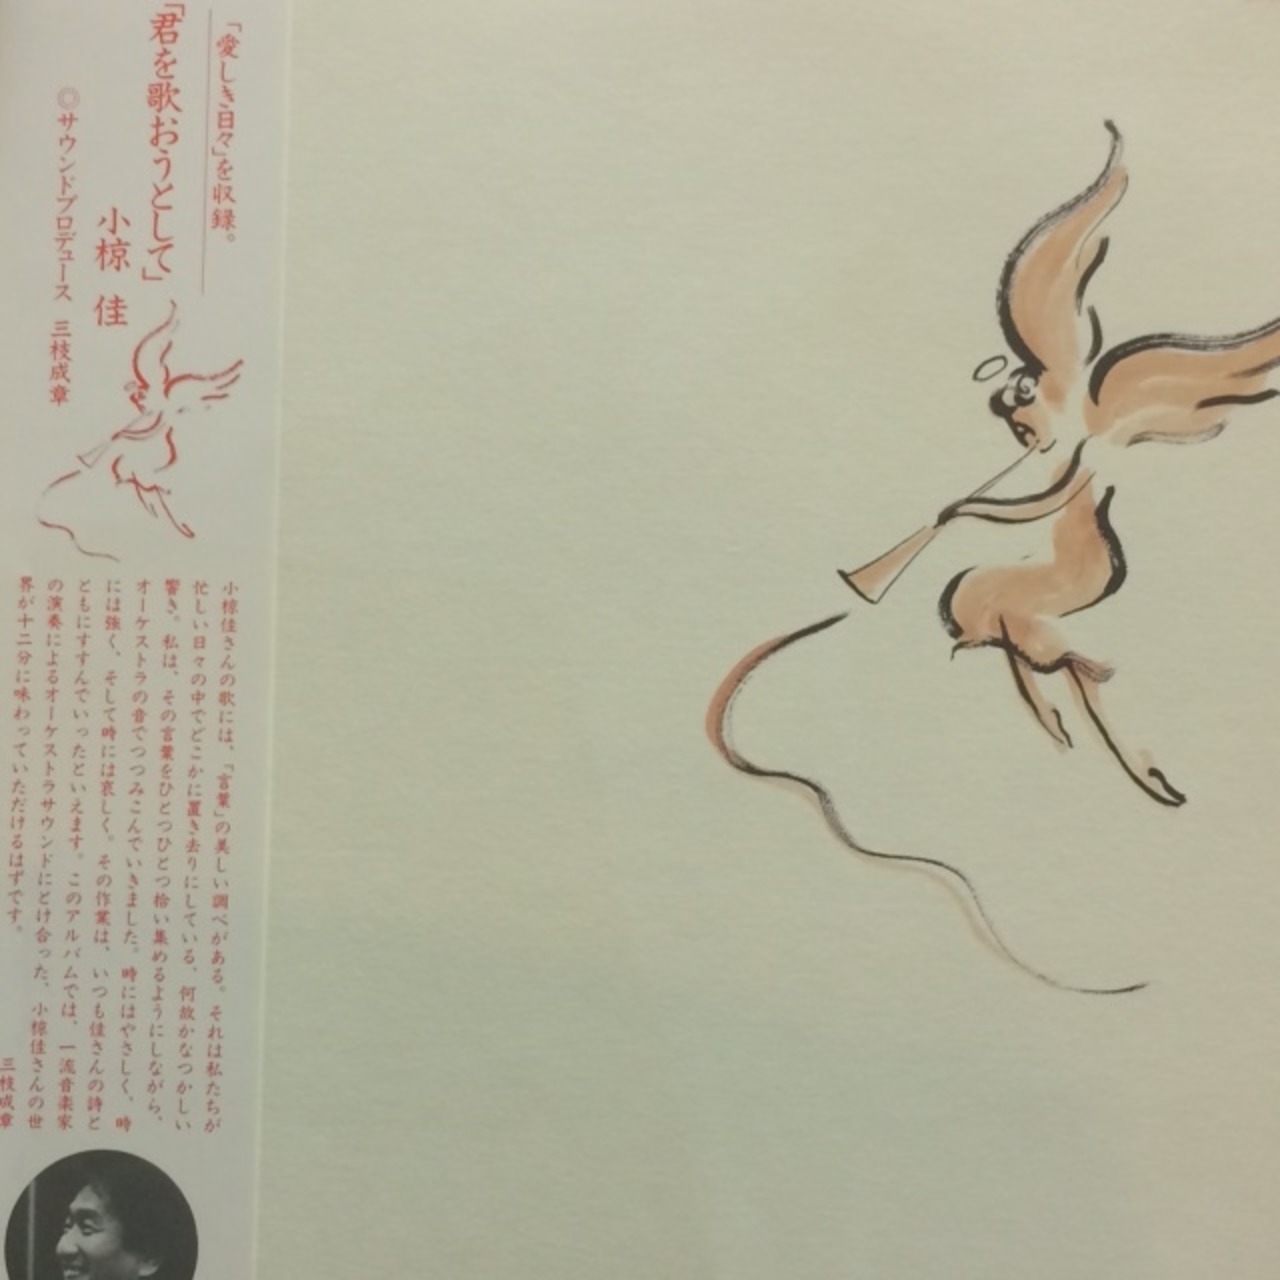 「愛しき日々」を収録。
「君を歌おうとして」
小椋 佳
◎サウンドプロデュース 三枝成章
小椋佳さんの歌には、「言葉」の美しい調べがある。それは私たちが
忙しい日々の中でどこかに置き去りにしている、何故かなつかしい
響き。私は、その言葉をひとつひとつ拾い集めるようにしながら、
オーケストラの音でつつみこんでいきました。時にはやさしく、時
には強く、そして時には哀しく。その作業は、いつも佳さんの詩と
ともにすすんでいったといえます。このアルバムでは、一流音楽家
の演奏によるオーケストラサウンドにとけ合った、小椋佳さんの世
界が十二分に味わっていただけるはずです。
三枝成章